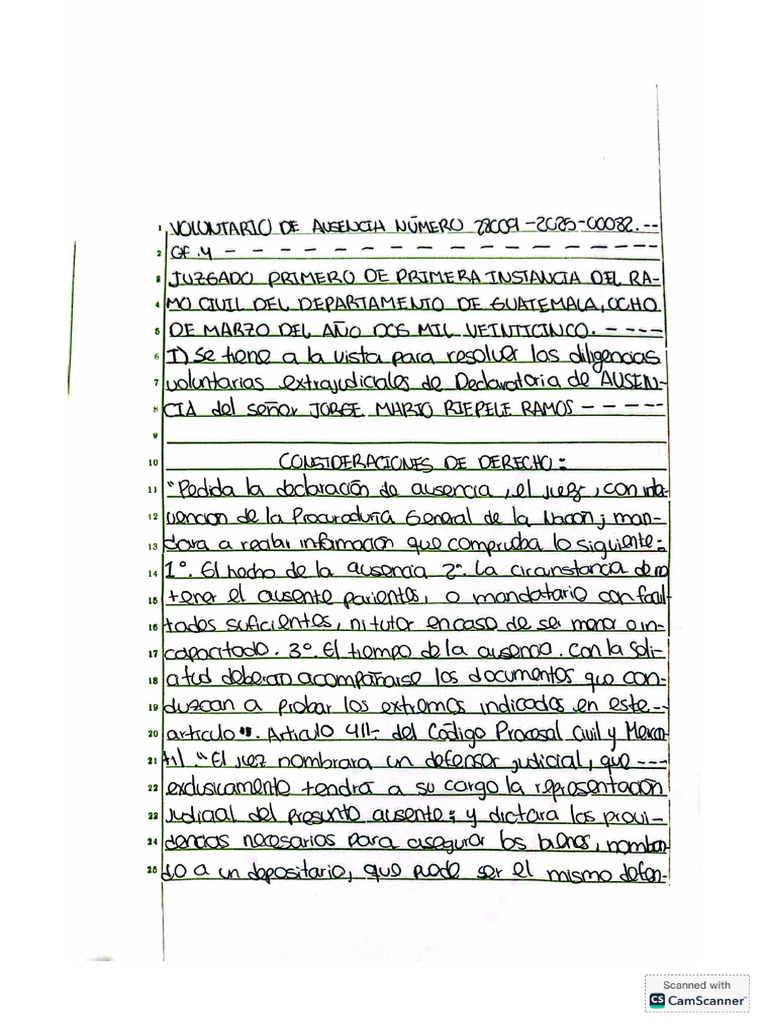 1 VOLUNTARIO DE AUSENCIA NÚMERO 22009-2025-00082.--
2 Of. 4 - - - - - - - - - - - - - - - - - - - - -
3 JUZGADO PRIMERO DE PRIMERA INSTANCIA DEL RA-
4 MO CIVIL DEL DEPARTAMENTO DE GUATEMALA, OCHO
5 DE MARZO DEL AÑO DOS MIL VEINTICINCO. - - - -
6 I) Se tiene a la vista para resolver las diligencias
7 voluntarias extrajudiciales de Declaratoria de AUSEN-
8 CIA del señor JORGE MARIO RIEPELE RAMOS - - - - -
9
10 CONSIDERACIONES DE DERECHO:
11 "Pedida la declaración de ausencia, el juez, con inte-
12 vencion de la Procuraduría General de la Nación; man-
13 dara a recibir información que comprueba lo siguiente:
14 1°. El hecho de la ausencia 2°. La circunstancia de no
15 tener el ausente parientes, o mandatario con facul-
16 tades suficientes, ni tutor en caso de ser menor o in-
17 capacitado. 3°. El tiempo de la ausencia. Con la Soli-
18 citud deberan acompañarse los documentos que con-
19 duzcan a probar los extremos indicados en este --
20 articulo". Articulo 411- del Código Procesal Civil y Mercan-
21 til "El juez nombrara un defensor judicial, que ---
22 exclusicamente tendrá a su cargo la representación
23 judicial del presunto ausente; y dictara las provi-
24 dencias necesarias para asegurar los bienes, nomban-
25 do a un depositario, que puede ser el mismo defen-
Scanned with
CS CamScanner